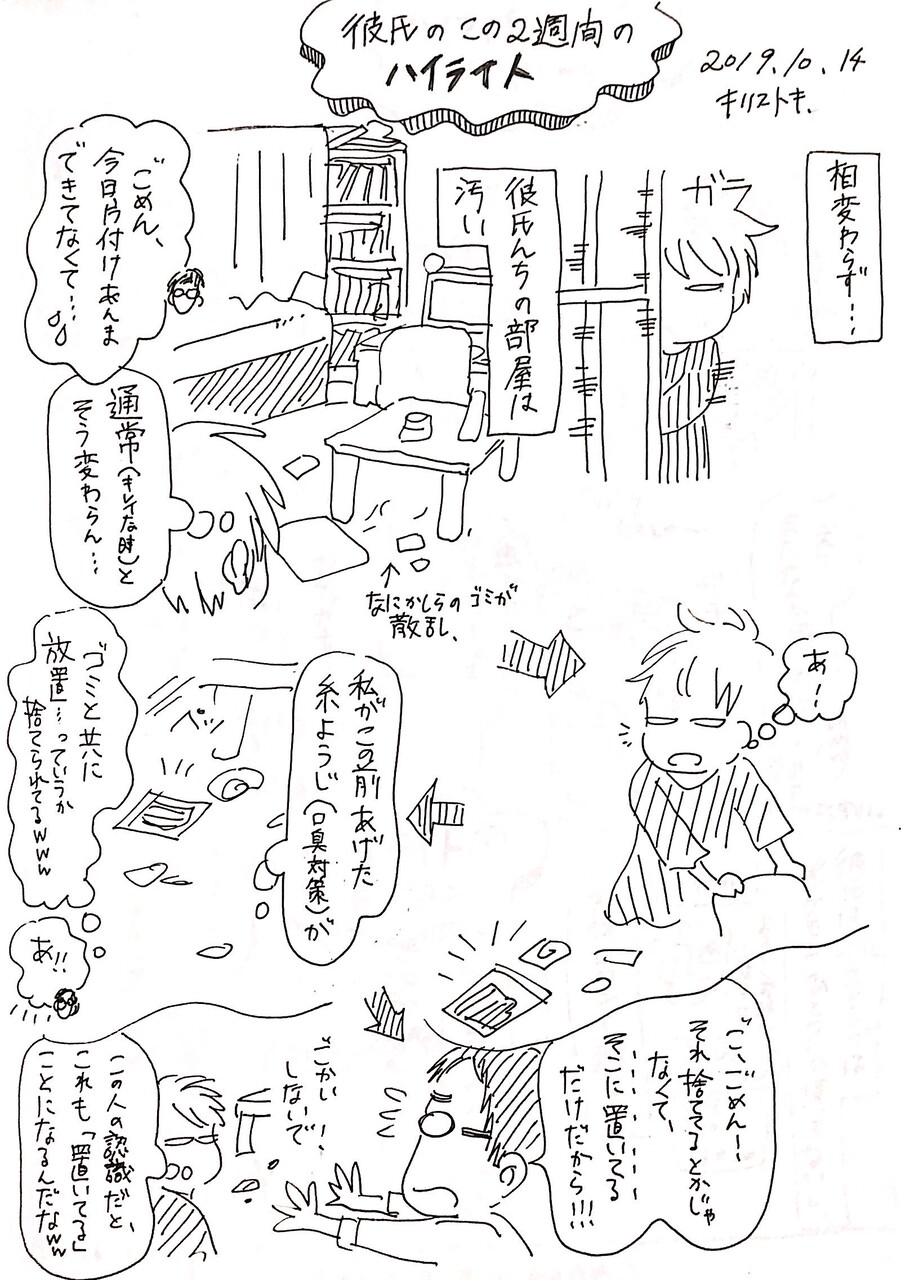 彼氏のこの2週間の
ハイライト
2019.10.14
キリエトキ.
相変わらず…
ガラ
彼氏んちの部屋は
汚い
ごめん、
今日片付けあんま
できてなくて…
通常(キレイな時)と
そう変わらん…
なにかしらのゴミが
散乱、
あ!
私がこの前あげた
糸ようじ(口臭対策)が
ペッ
ゴミと共に
放置…っていうか
捨てられてるwww
あ!!
ご、ごめんー
それ捨ててるとかじゃ
なくて、
…………
そこに置いてる
だけだから!!!
ごかい
しないで!
この人の認識だと、
これも「置いてる」
ことになるんだなww